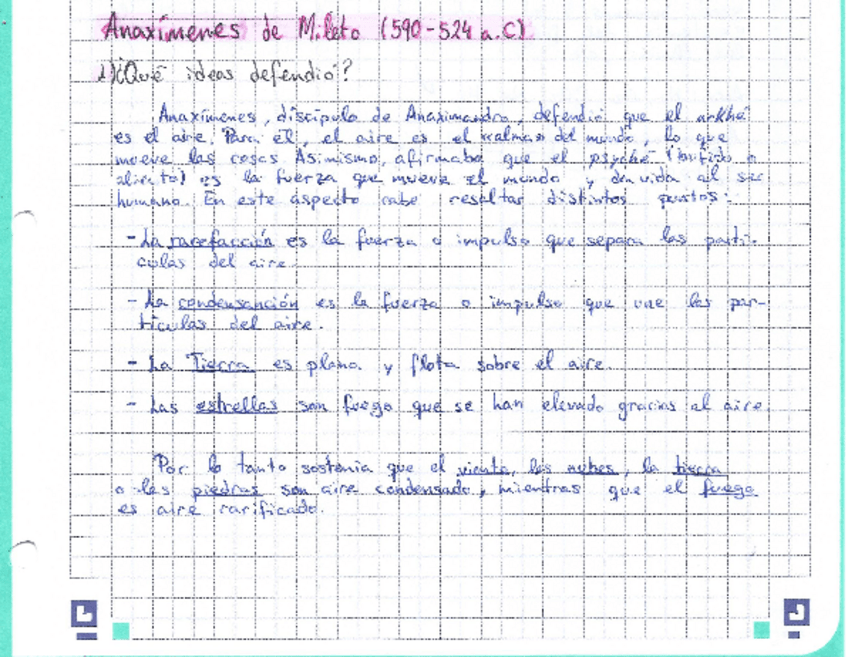 Anaxímenes de Mileto (590-524 a.C)
1)¿Qué ideas defendió?
Anaxímenes, discípulo de Anaximandro, defendió que el arkhé
es el aire. Para él, el aire es el «alma» del mundo, lo que
mueve las cosas. Asimismo, afirmaba que el psyché (bufido o
aliento) es la fuerza que mueve el mundo y da vida al ser
humano. En este aspecto cabe resaltar distintos puntos:
- La rarefacción es la fuerza o impulso que separa las partí-
culas del aire.
- La condensanción es la fuerza o impulso que une las par-
tículas del aire.
- La Tierra es plana y flota sobre el aire.
- Las estrellas son fuego que se han elevado gracias al aire.
Por lo tanto sostenía que el viento, las nubes, la tierra
o las piedras son aire condensado, mientras que el fuego
es aire rarificado.